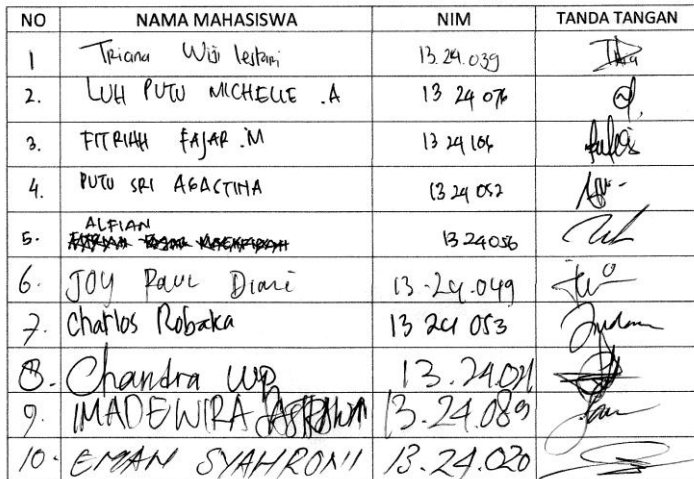 NO NAMA MAHASISWA NIM TANDA TANGAN
1 Triana Wiji lestari 13.24.039
2. LUH PUTU MICHELLE .A 13 24 076
3. FITRIAH FAJAR .M 13 24 106
4. PUTU SRI AGACTINA 13 24 052
ALFIAN
5. 13 24 056
6. JOY PAUL Diari 13-24.049
7. Charlos Robaka 13 24 053
8. Chandra WP 13.24.021
9. IMADE WIRA 13.24.089
10. EMAN SYAHRONI 13.24.020